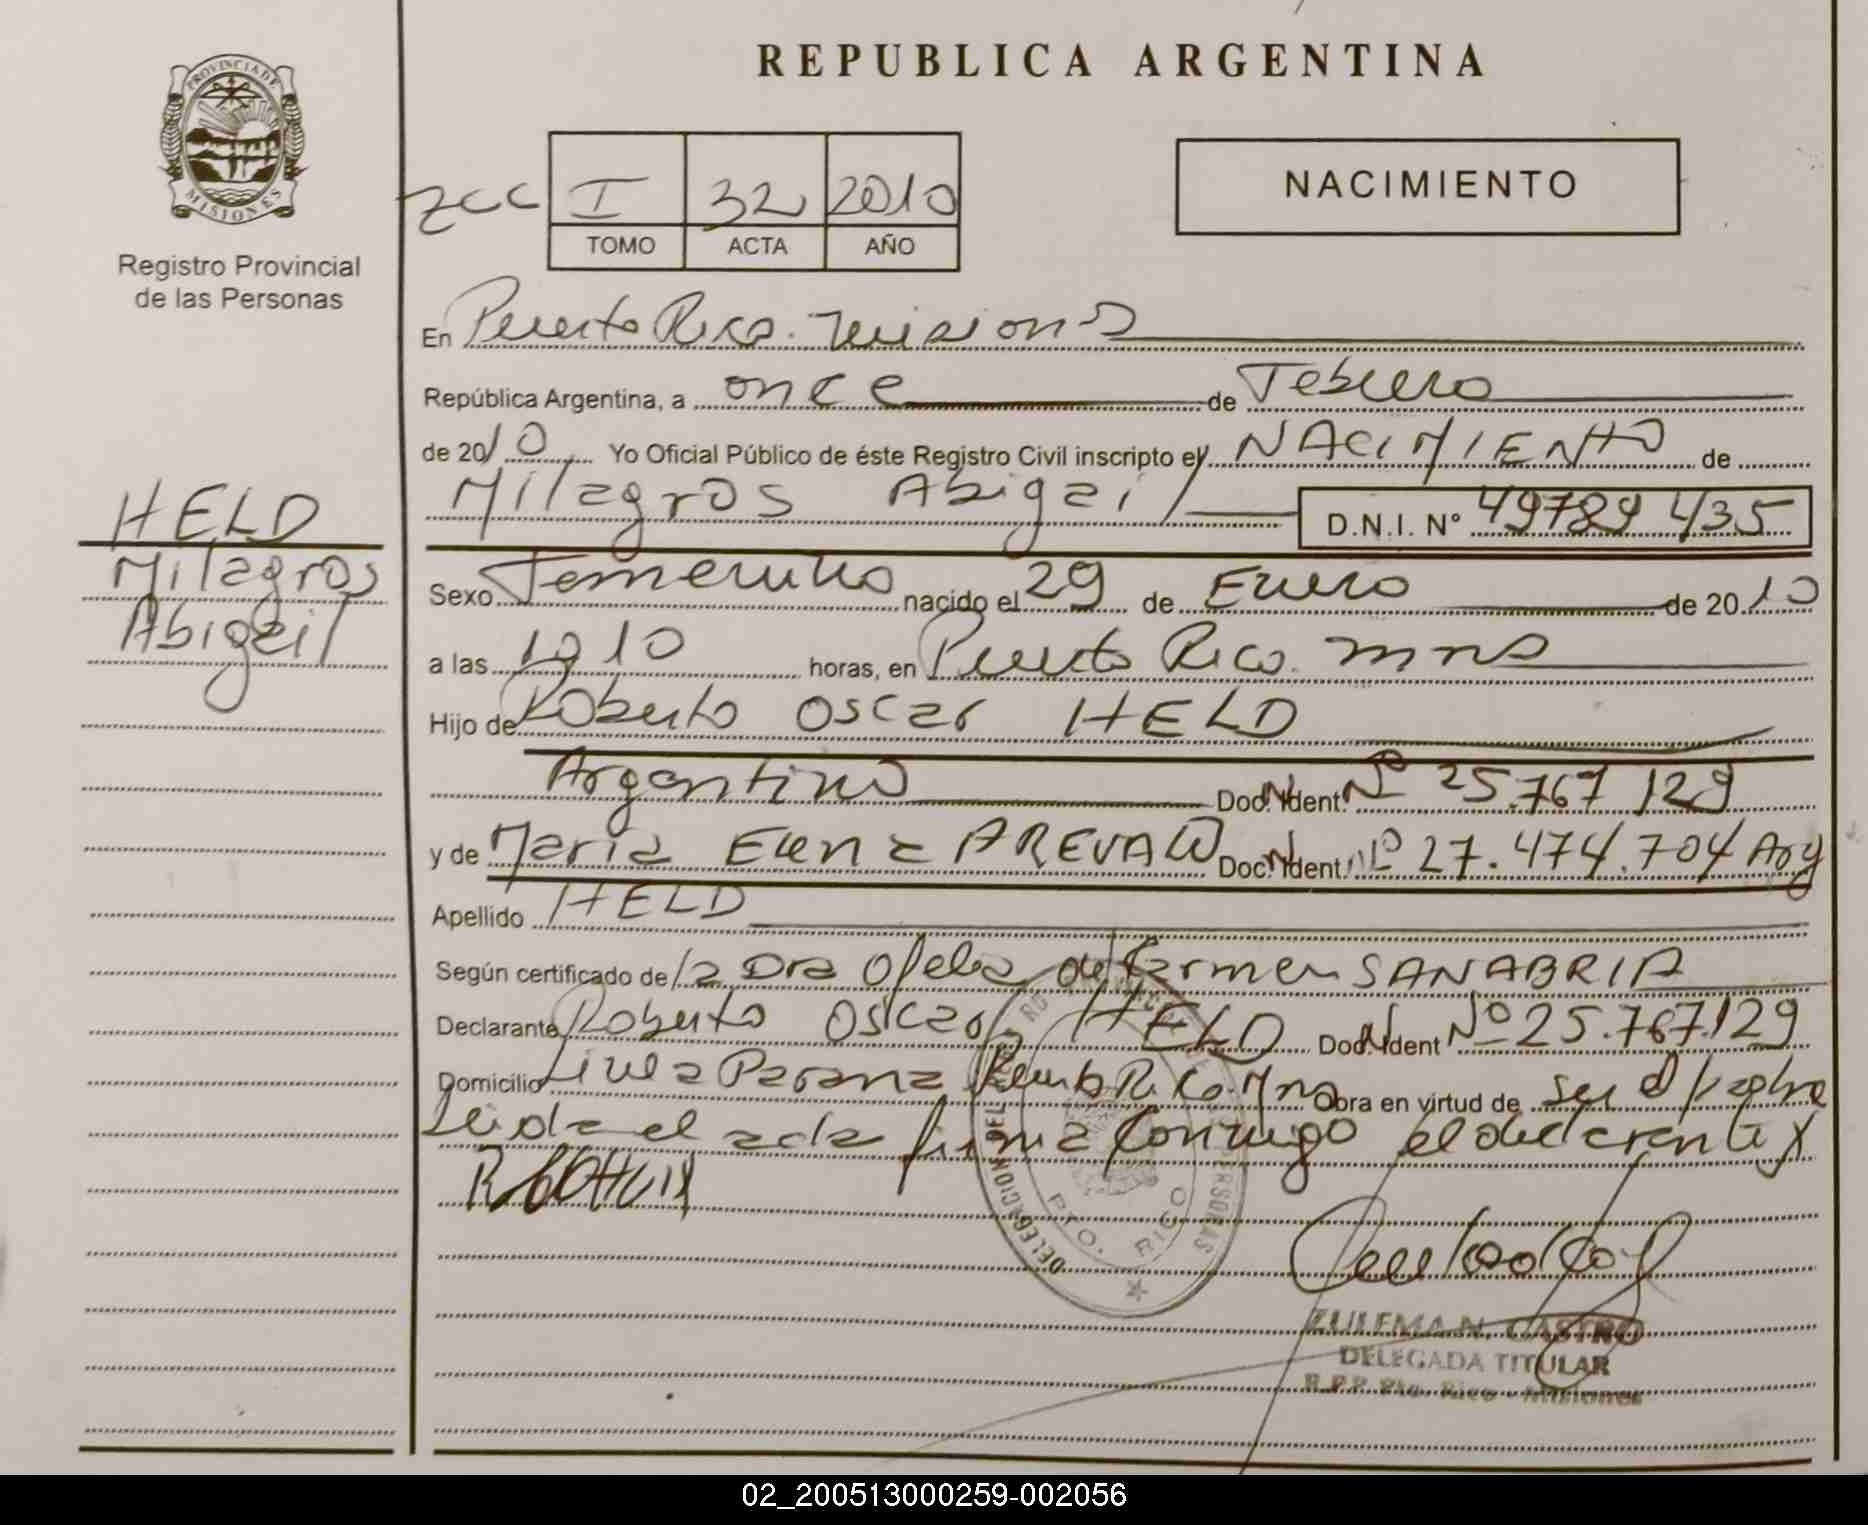 PROVINCIA DE
MISIONES
Registro Provincial
de las Personas
HELD
Milagros
Abigail
REPUBLICA ARGENTINA
I 32 2010
TOMO ACTA AÑO
NACIMIENTO
En Puerto Rico. Misiones
República Argentina, a once de Febrero
de 2010 Yo Oficial Público de éste Registro Civil inscripto el NACIMIENTO de
Milagros Abigail D.N.I. N° 49789435
Sexo Femenino nacido el 29 de Enero de 2010
a las horas, en Puerto Rico. mns
Hijo de Roberto Oscar HELD
Argentino Doc. Ident. Nº 25.767129
y de Maria Elena AREVALO Doc. Ident. Nº 27.474.704 Arg
Apellido HELD
Según certificado de la Dra Ofelia del Carmen SANABRIA
Declarante Roberto Oscar HELD Doc. Ident Nº 25.767.129
Domicilio Linea Parana Puerto Rico. Mns Obra en virtud de ser el padre
Leida el acta firma conmigo el declarante
DELEGACION DEL PERSONAS
PTO. RICO
ZULEMA N. CASTRO
DELEGADA TITULAR
R.P.P. Pto. Rico - Misiones
02_200513000259-002056